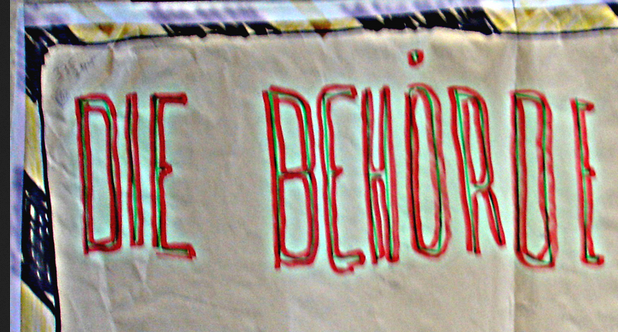 DIE BEHÖRDE